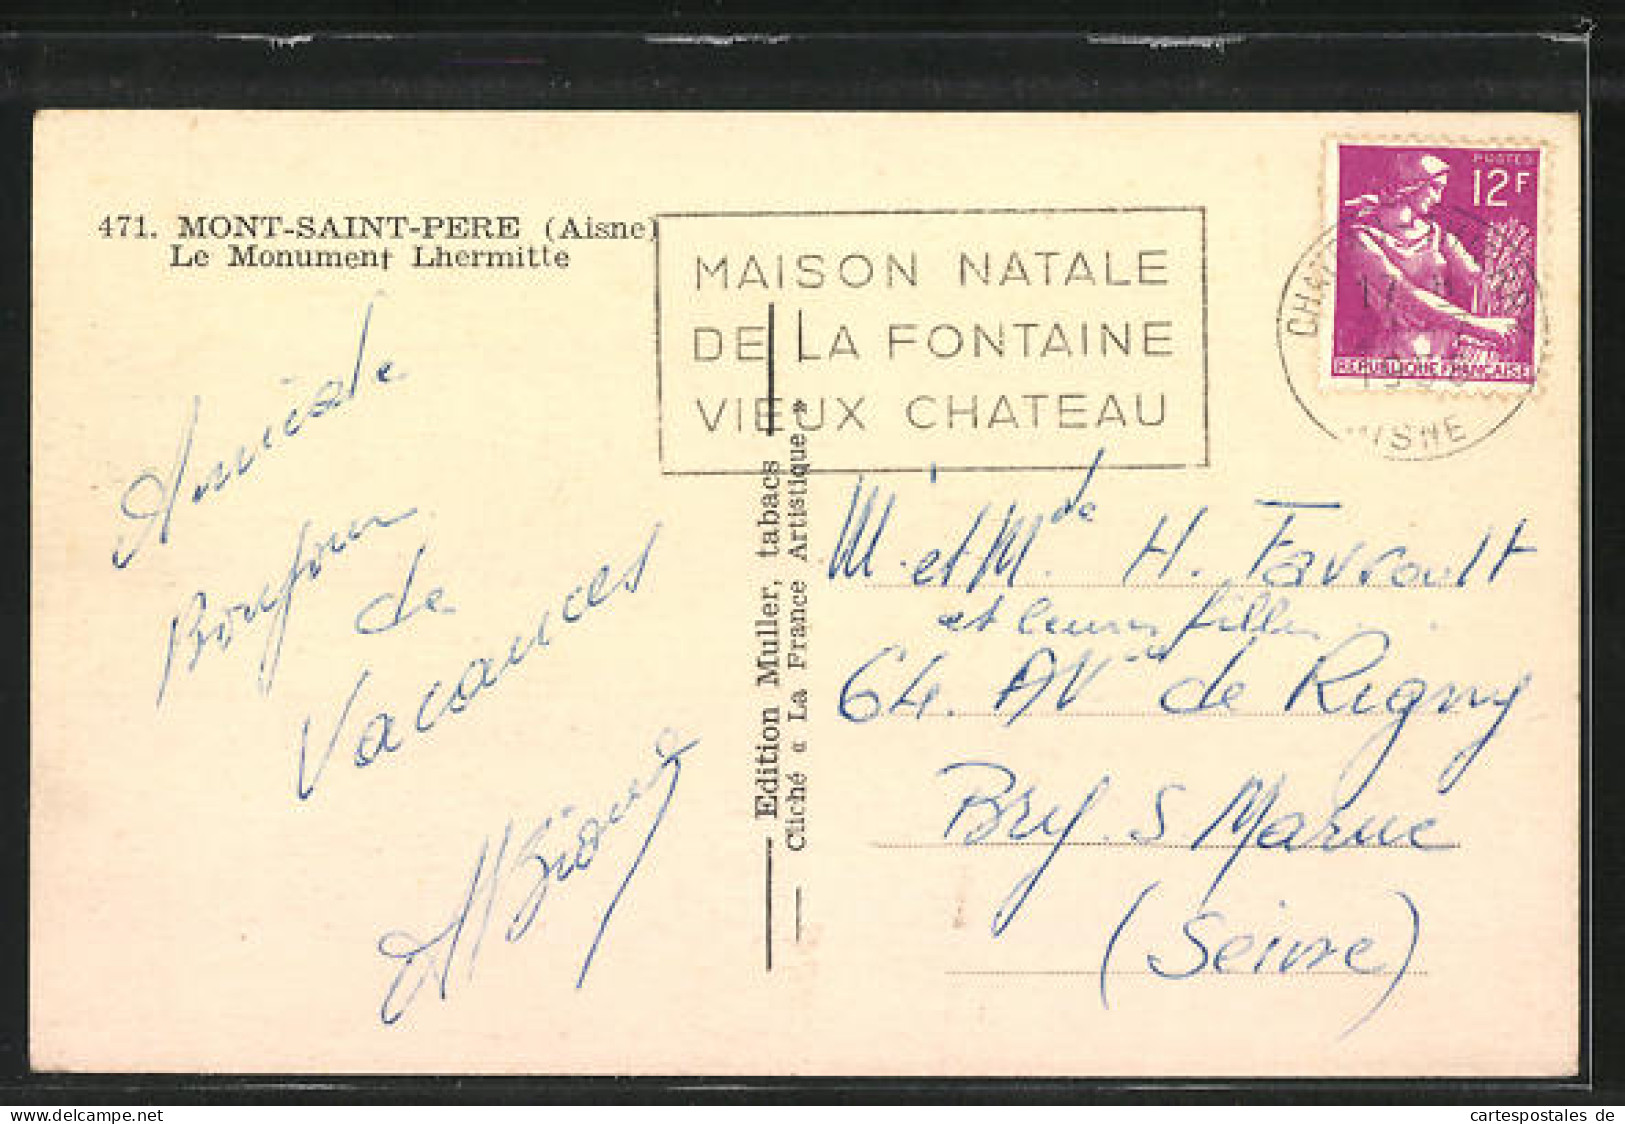 471. MONT-SAINT-PERE (Aisne)
Le Monument Lhermitte
MAISON NATALE
DE LA FONTAINE
VIEUX CHATEAU
POSTES
12F
REPUBLIQUE FRANÇAISE
AISNE
Amicale
Bonjour
de
Vacances
Edition Muller, tabacs
Cliché « La France Artistique »
M. et Mde H. Favrault
et leurs filles
64. AV de Rigny
Bry. S Marne
(Seine)
cartespostales de